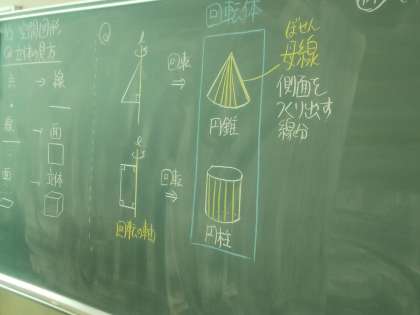 空間図形
Q 立体の見方
点 → 線
線 → 面
面 → 立体
Q
ℓ
回転
⇒
ℓ
回転
⇒
回転の軸
回転体
円錐
円柱
ぼせん
母線
側面を
つくり出す
線分